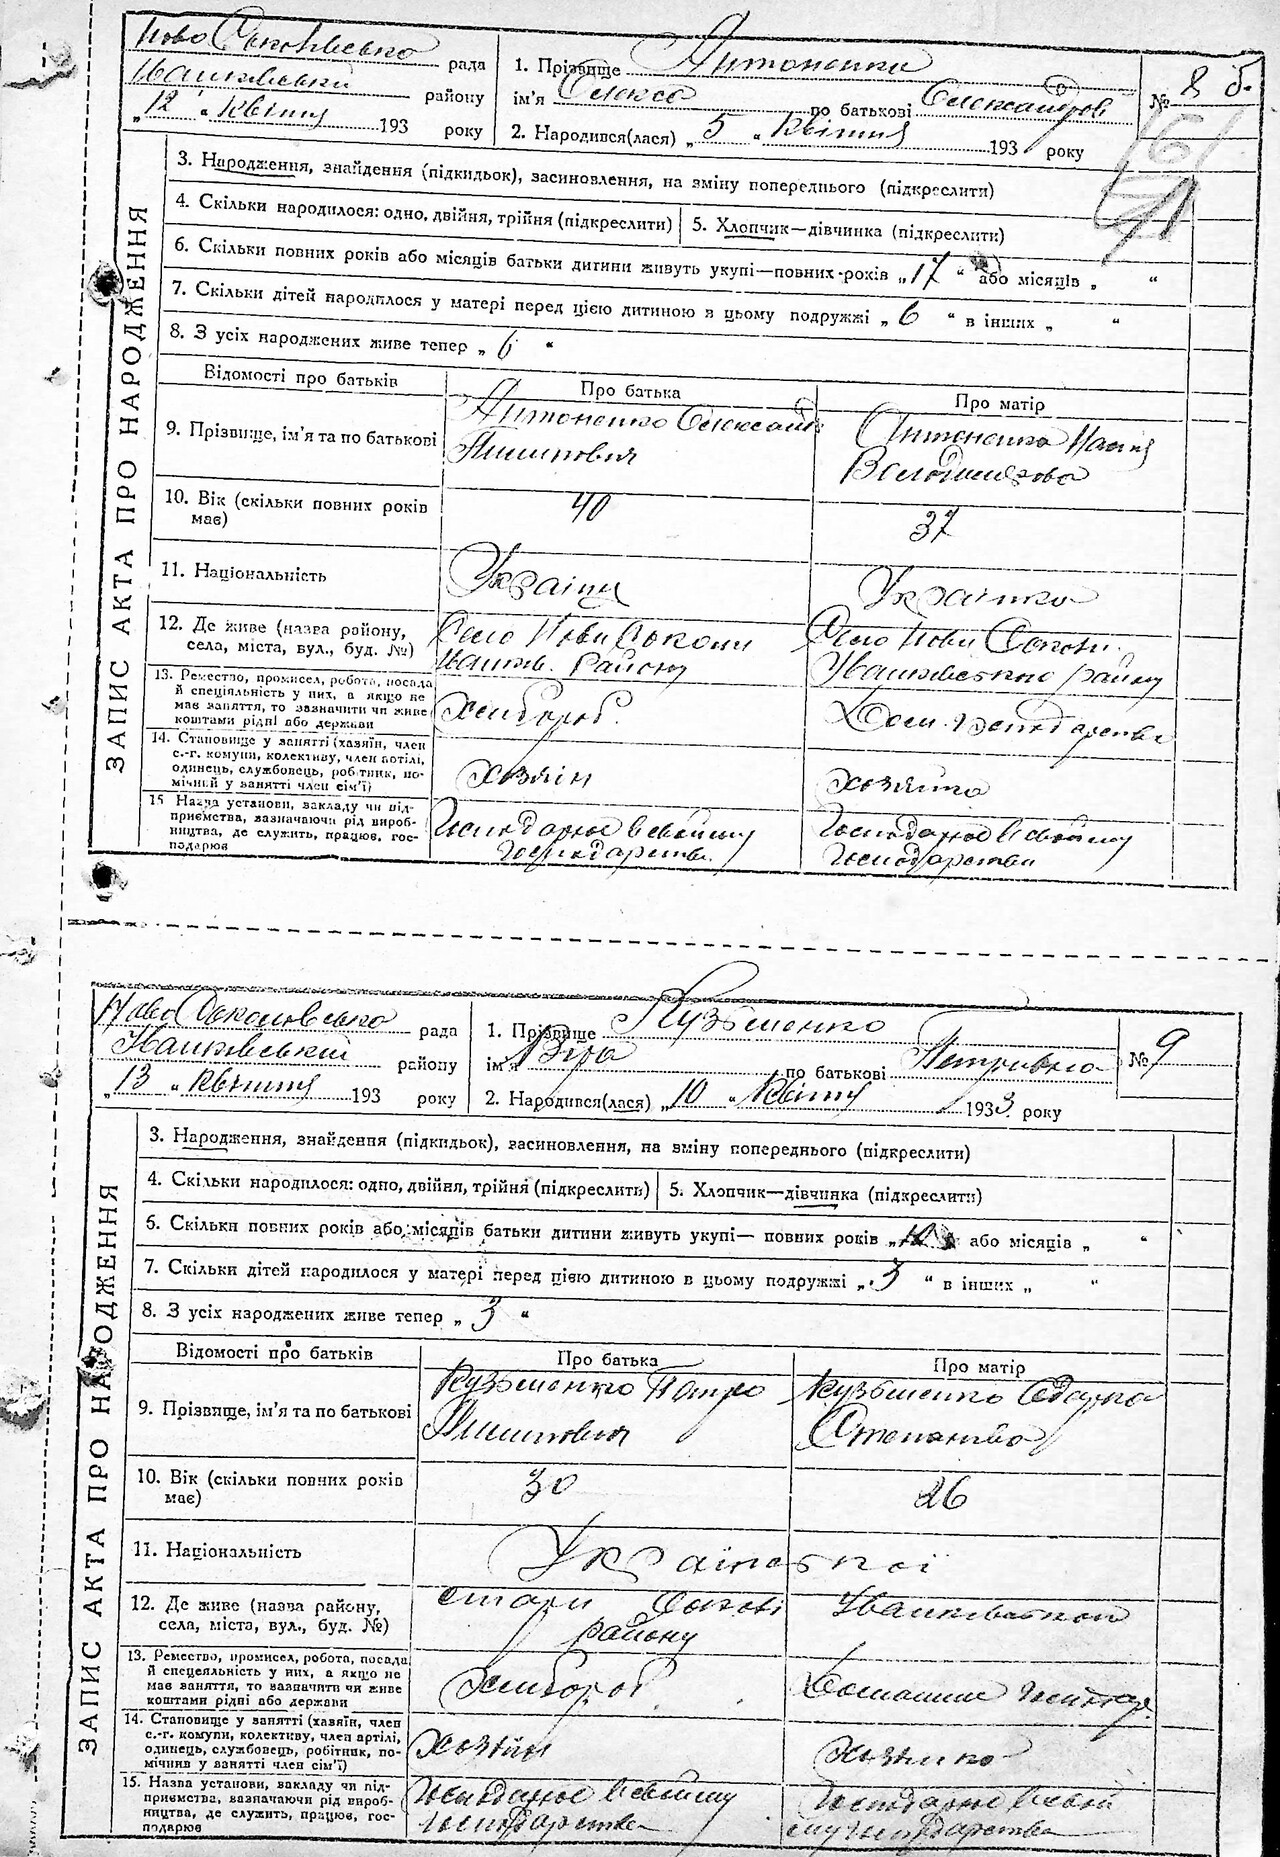 Ново Соколівська рада
Іванківський району
„12 " Квітня 193 року
1. Прізвище Антоненко
ім'я Олекса по батькові Олександров
2. Народився(лася) „5 " Квітня 193 року
№ 8 б.
ЗАПИС АКТА ПРО НАРОДЖЕННЯ
3. Народження, знайдення (підкидьок), засиновлення, на зміну попереднього (підкреслити)
4. Скільки народилося: одно, двійня, трійня (підкреслити)
5. Хлопчик—дівчинка (підкреслити)
6. Скільки повних років або місяців батьки дитини живуть укупі—повних років „17 " або місяців „ "
7. Скільки дітей народилося у матері перед цією дитиною в цьому подружжі „ 6 " в інших „ "
8. З усіх народжених живе тепер „ 6 "
Відомості про батьків
Про батька
Про матір
9. Прізвище, ім'я та по батькові
Антоненко Олександ
Пилипович
Антоненко
Володимирова
10. Вік (скільки повних років
має)
40
37
11. Національність
Українц
Українка
12. Де живе (назва району,
села, міста, вул., буд. №)
Село Нови Соколи
Іванків. Району
Село Нови Соколи.
Іванківського району
13. Ремество, промисел, робота, посада
й спеціяльність у них, а якщо не
має заняття, то зазначити чи живе
коштами рідні або держави
Хлибороб.
Дом. господарства
14. Становище у занятті (хазяїн, член
с.-г. комуни, колективу, член артілі,
одинець, службовець, робітник, по-
мічний у занятті член сім'ї)
хозяін
хозяйка
15 Назва установи, закладу чи під-
приємства, зазначаючи рід вироб-
ництва, де служить, працює, гос-
подарює
Господарює в своїому
Господарстви.
Господарює в своїому
Господарстви
Ново Соколовська рада
Іванківський району
„13 " Квітня 193 року
1. Прізвище Кузьменко
ім'я Віра по батькові Петривна
2. Народився(лася) „10 " Квітня 1933 року
№ 9
ЗАПИС АКТА ПРО НАРОДЖЕННЯ
3. Народження, знайдення (підкидьок), засиновлення, на зміну попереднього (підкреслити)
4. Скільки народилося: одно, двійня, трійня (підкреслити)
5. Хлопчик—дівчинка (підкреслити)
6. Скільки повних років або місяців батьки дитини живуть укупі— повних років „ " або місяців „ "
7. Скільки дітей народилося у матері перед цією дитиною в цьому подружжі „ 3 " в інших „ "
8. З усіх народжених живе тепер „ 3 "
Відомості про батьків
Про батька
Про матір
9. Прізвище, ім'я та по батькові
Кузьменко Петро
Пилипович
Кузьменко Одарка
Степанівна
10. Вік (скільки повних років
має)
30
26
11. Національність
Українскої
12. Де живе (назва району,
села, міста, вул., буд. №)
Стари Соколи Іванкивского
району
13. Ремество, промисел, робота, посада
й спецеяльність у них, а якщо не
має заняття, то зазначити чи живе
коштами рідні або держави
Хлибороб.
Домашне
14. Становище у занятті (хазяїн, член
с.-г. комуни, колективу, член артілі,
одинець, службовець, робітник, по-
мічнив у занятті член сім'ї)
хозяін
хозяйко
15. Назва установи, закладу чи під-
приємства, зазначаючи рід вироб-
ництва, де служить, працює, гос-
подарює
Господарює в своїому
господарстви
Господарює в свої
ому господарстви